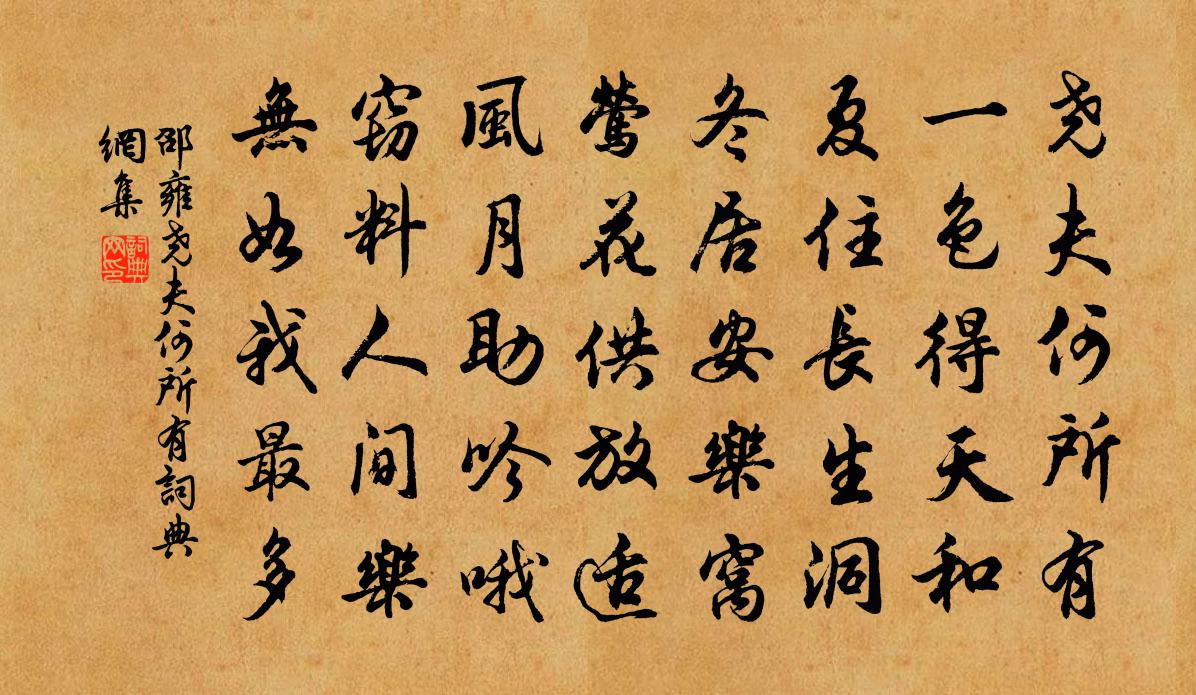 尧夫何所有
一色得天和
夏住長生洞
冬居安樂窩
鶯花供放适
風月助吟哦
窃料人间樂
無如我最多
邵雍尧夫何所有詞典
網集
詞典
网印